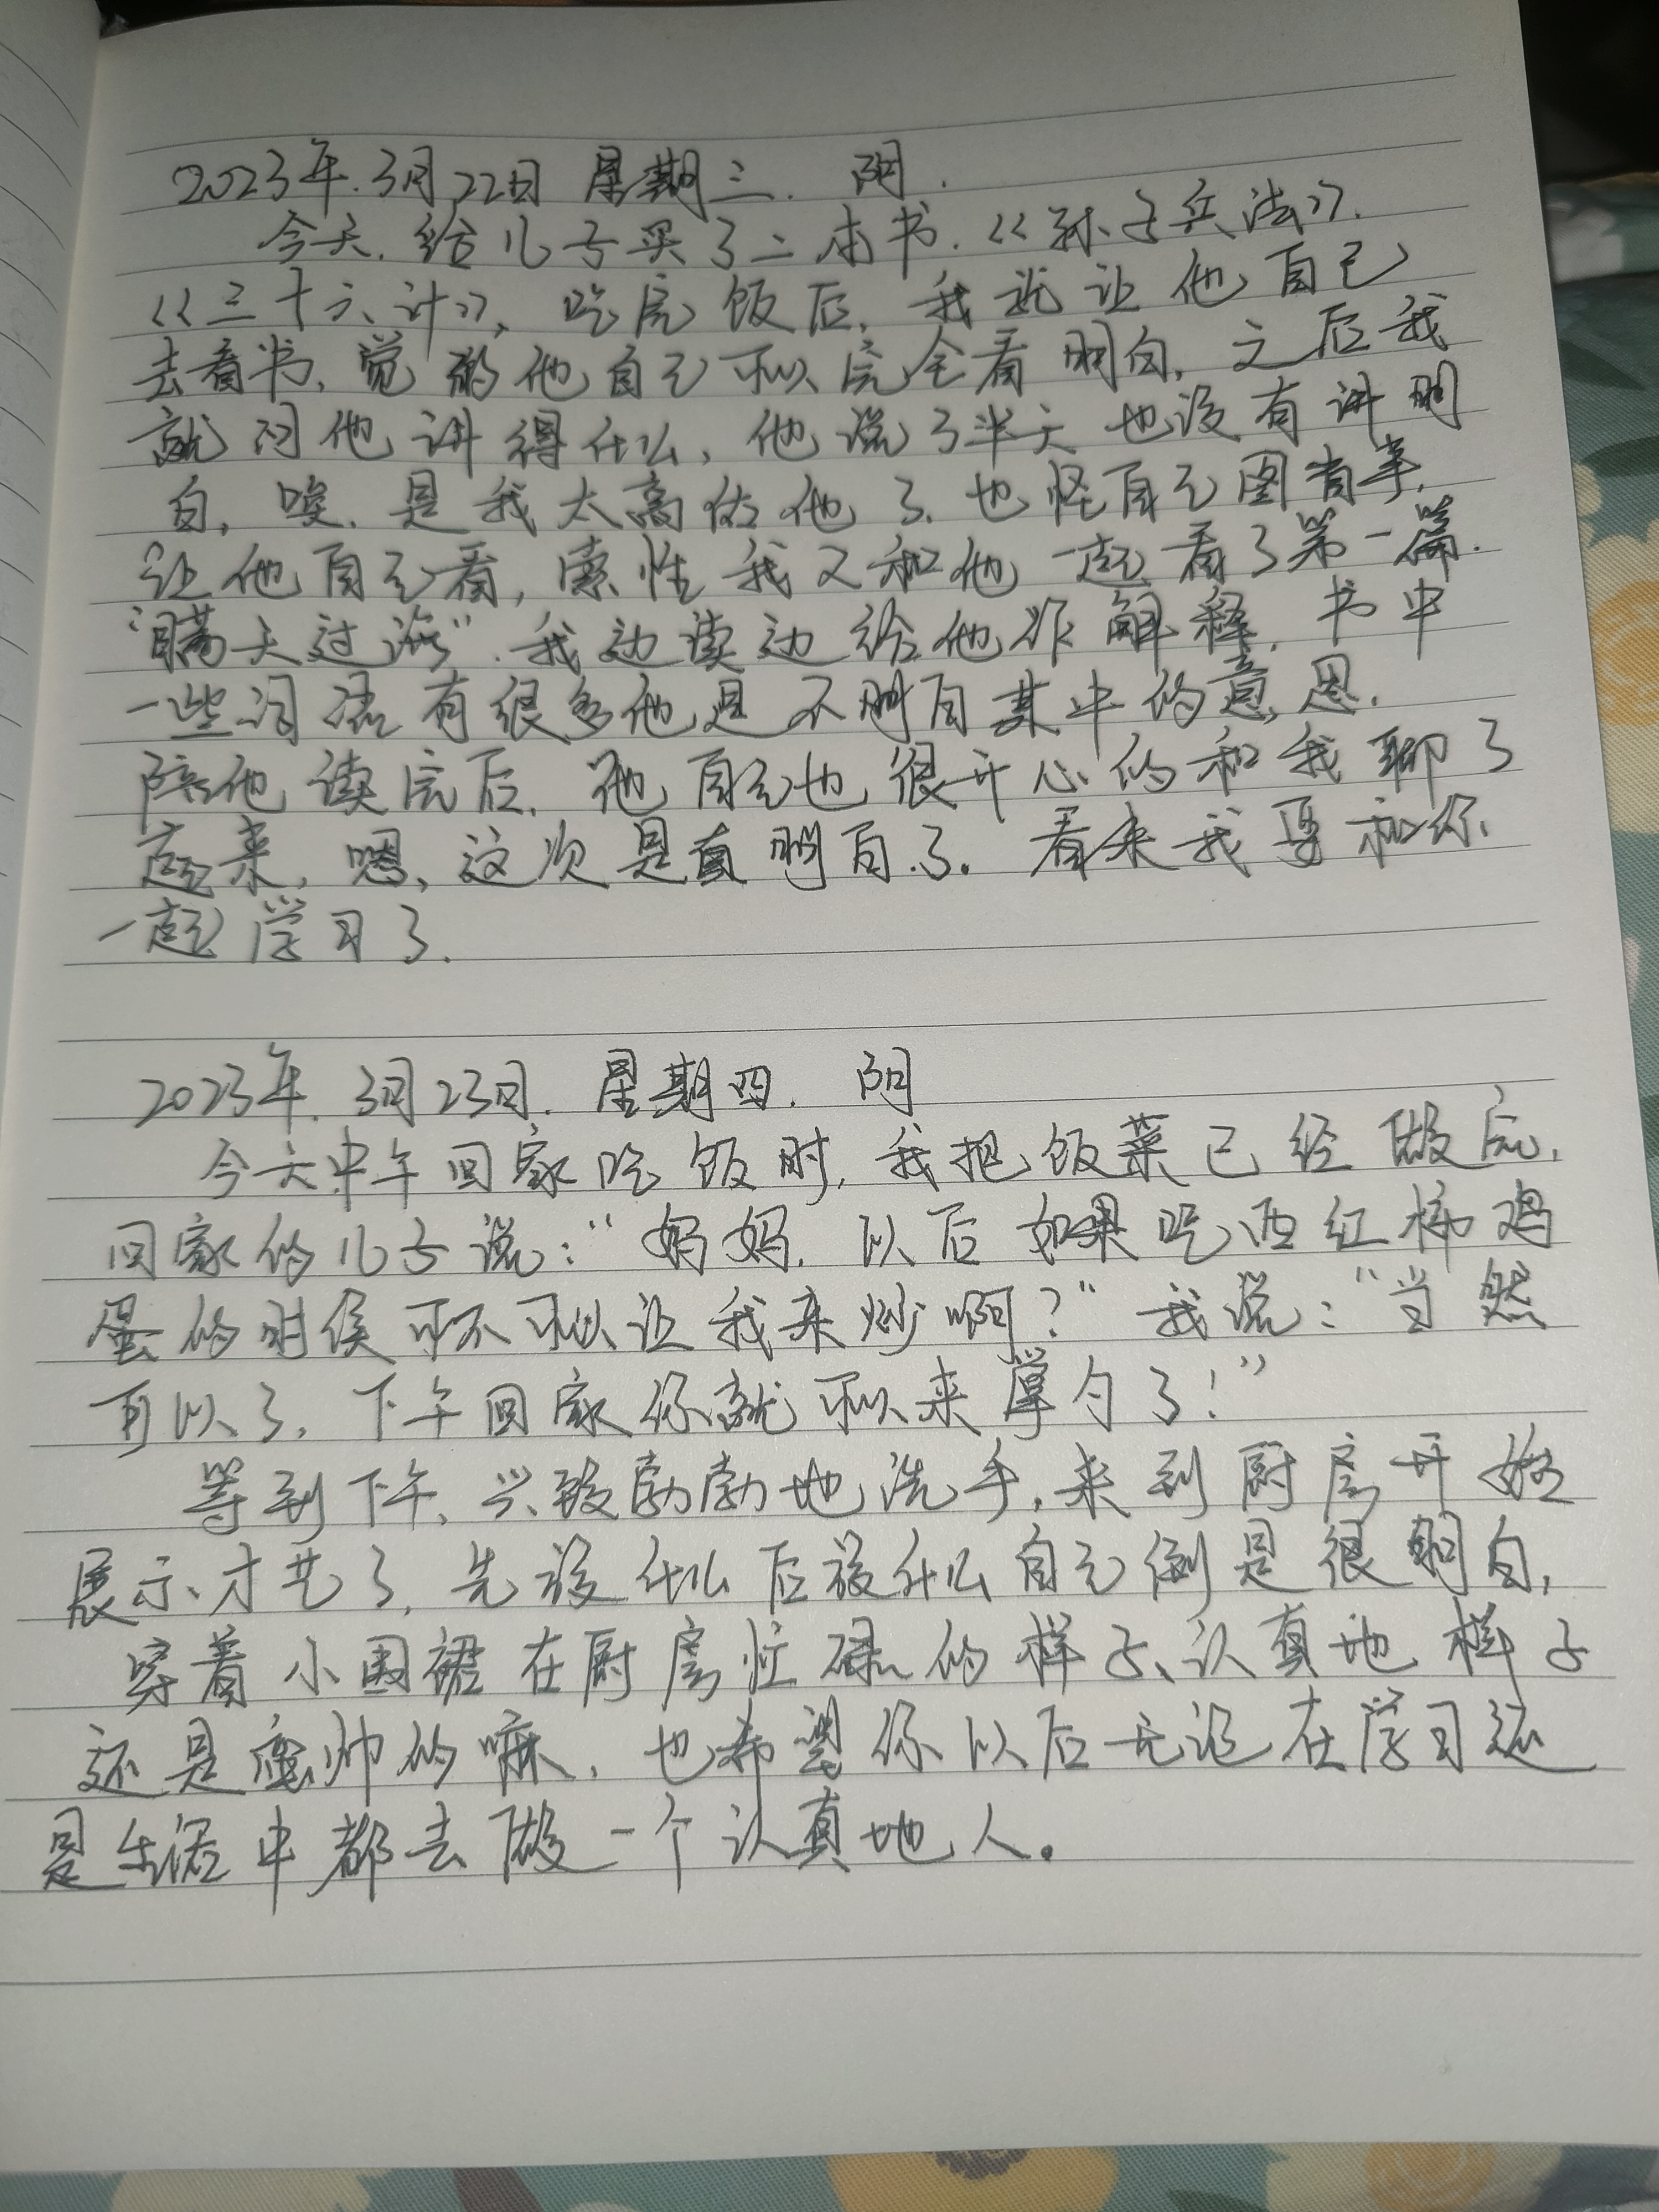 2023年.3月22日 星期三. 阴.
今天.给儿子买了二本书.《孙子兵法》.
《三十六计》,吃完饭后,我就让他自己
去看书,觉的他自己可以完全看明白,之后我
就问他讲得什么,他说了半天也没有讲明
白,唉,是我太高估他了.也怪自己图省事,
让他自己看,索性我又和他一起看了第一篇.
“瞒天过海”.我边读边给他作解释,书中
一些词语有很多他是不明白其中的意思.
陪他读完后.他自己也很开心的和我聊了
起来,嗯,这次是真明白了.看来我要和你
一起学习了.
2023年.3月23日.星期四. 阴
今天中午回家吃饭时,我把饭菜已经做完,
回家的儿子说:“妈妈.以后如果吃西红柿鸡
蛋的时侯可不可以让我来炒啊?”我说:“当然
可以了,下午回家你就可以来掌勺了!”
等到下午、兴致勃勃地洗手,来到厨房开始
展示才艺了,先放什么后放什么自己倒是很明白,
穿着小围裙在厨房忙碌的样子、认真地样子
还是蛮帅的嘛,也希望你以后无论在学习还
是生活中都去做一个认真地人。